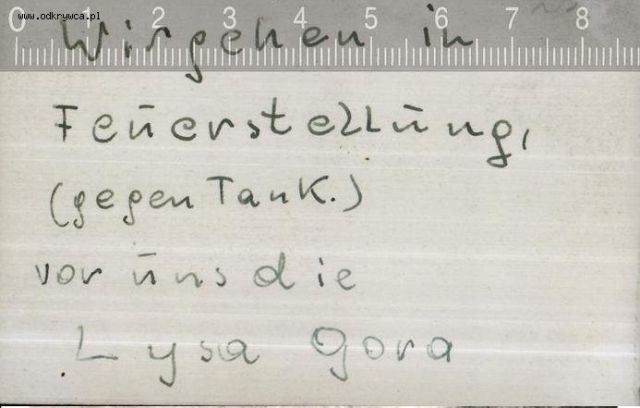 www.odkrywca.pl
0 1 2 3 4 5 6 7 8
Wir gehen in
Feuerstellung,
(gegen Tank.)
vor uns die
Lysa Gora